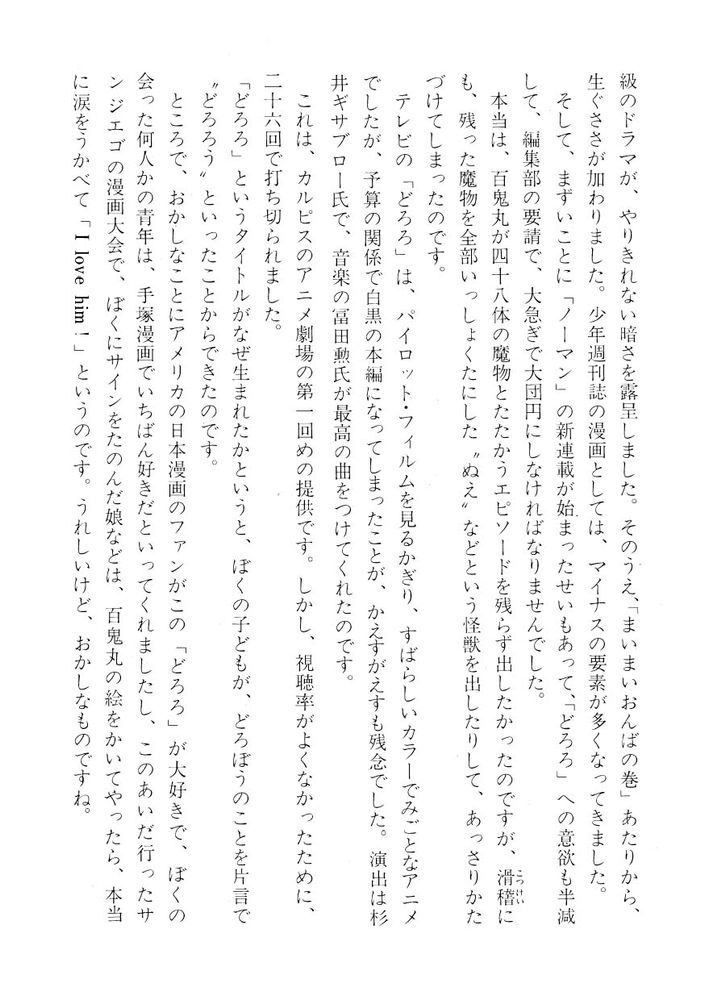 級のドラマが、やりきれない暗さを露呈しました。そのうえ、「まいまいおんばの巻」あたりから、
生ぐささが加わりました。少年週刊誌の漫画としては、マイナスの要素が多くなってきました。
そして、まずいことに「ノーマン」の新連載が始まったせいもあって、「どろろ」への意欲も半減
して、編集部の要請で、大急ぎで大団円にしなければなりませんでした。
本当は、百鬼丸が四十八体の魔物とたたかうエピソードを残らず出したかったのですが、滑稽に
こっけい
も、残った魔物を全部いっしょくたにした〝ぬえ〟などという怪獣を出したりして、あっさりかた
づけてしまったのです。
テレビの「どろろ」は、パイロット・フィルムを見るかぎり、すばらしいカラーでみごとなアニメ
でしたが、予算の関係で白黒の本編になってしまったことが、かえすがえすも残念でした。演出は杉
井ギサブロー氏で、音楽の冨田勲氏が最高の曲をつけてくれたのです。
これは、カルピスのアニメ劇場の第一回めの提供です。しかし、視聴率がよくなかったために、
二十六回で打ち切られました。
「どろろ」というタイトルがなぜ生まれたかというと、ぼくの子どもが、どろぼうのことを片言で
〝どろろう〟といったことからできたのです。
ところで、おかしなことにアメリカの日本漫画のファンがこの「どろろ」が大好きで、ぼくの
会った何人かの青年は、手塚漫画でいちばん好きだといってくれましたし、このあいだ行ったサ
ンジエゴの漫画大会で、ぼくにサインをたのんだ娘などは、百鬼丸の絵をかいてやったら、本当
に涙をうかべて「I love him!」というのです。うれしいけど、おかしなものですね。